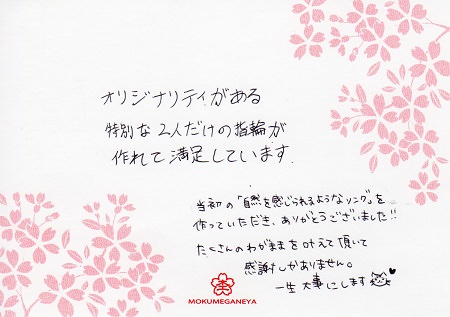 オリジナリティがある
特別な2人だけの指輪が
作れて満足しています.
当初の「自然を感じられるようなリング」を
作っていただき、ありがとうございました!!
たくさんのわがままを叶えて頂いて
感謝しかありません。
一生大事にします
MOKUMEGANEYA